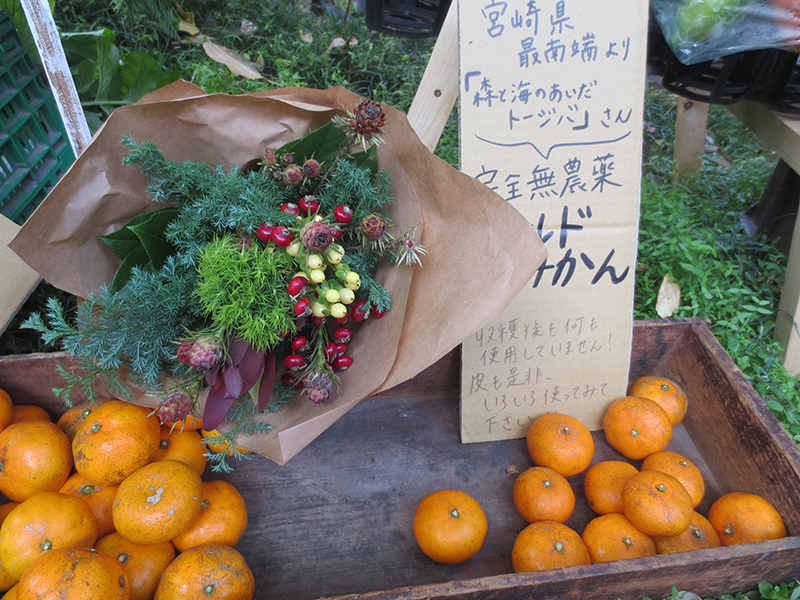 宮崎県
最南端より
「森と海のあいだ
トージバ」さん
完全無農薬
ルド
みかん
収穫後も何も
使用していません!
皮も是非、
いろいろ使ってみて
下さい